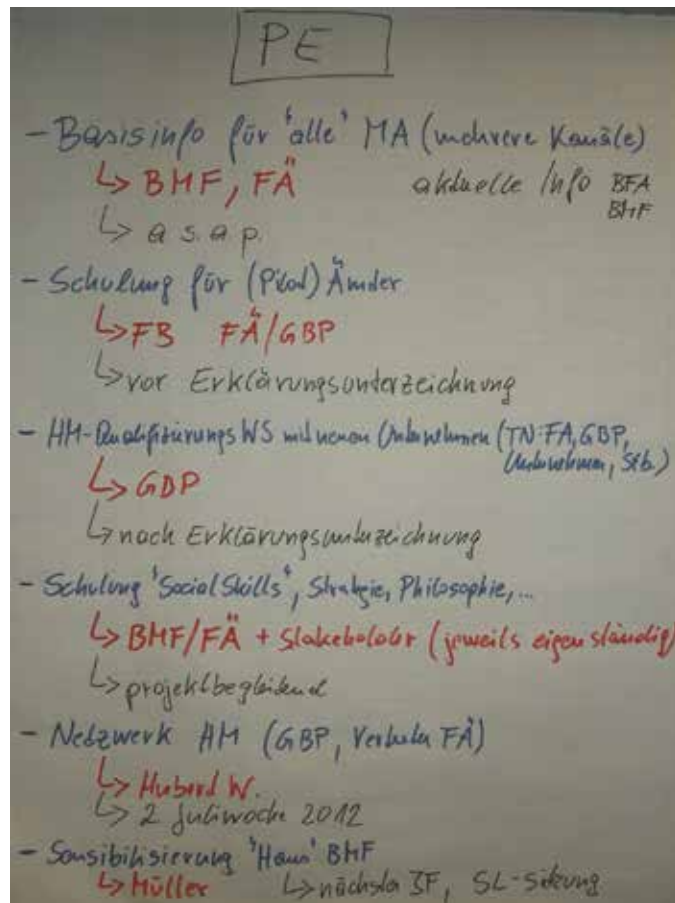 PE
- Basisinfo für 'alle' MA (mehrere Kanäle)
↳ BMF, FÄ aktuelle Info BFA
BMF
↳ a s. a p.
- Schulung für (Pilot) Ämter
↳ FB FÄ/GBP
↳ vor Erklärungsunterzeichnung
- HM-Qualifizierungs WS mit neuen Unternehmen (TN: FA, GBP,
Unternehmen, Stb.)
↳ GBP
↳ nach Erklärungsunterzeichnung
- Schulung 'Social Skills', Strategie, Philosophie,...
↳ BMF/FÄ + Stakeholder (jeweils eigenständig)
↳ projektbegleitend
- Netzwerk HM (GBP, Vertreter FÄ)
↳ W.
↳ 2 Juliwoche 2012
- Sensibilisierung 'Haus' BMF
↳ Müller ↳ nächste SL-Sitzung